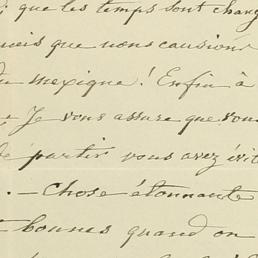 que les temps sont chang
que nous causions
mexique! Enfin à
Je vous assure que vou
de partir vous avez évit
. — Chose étonnante
bonnes quand on